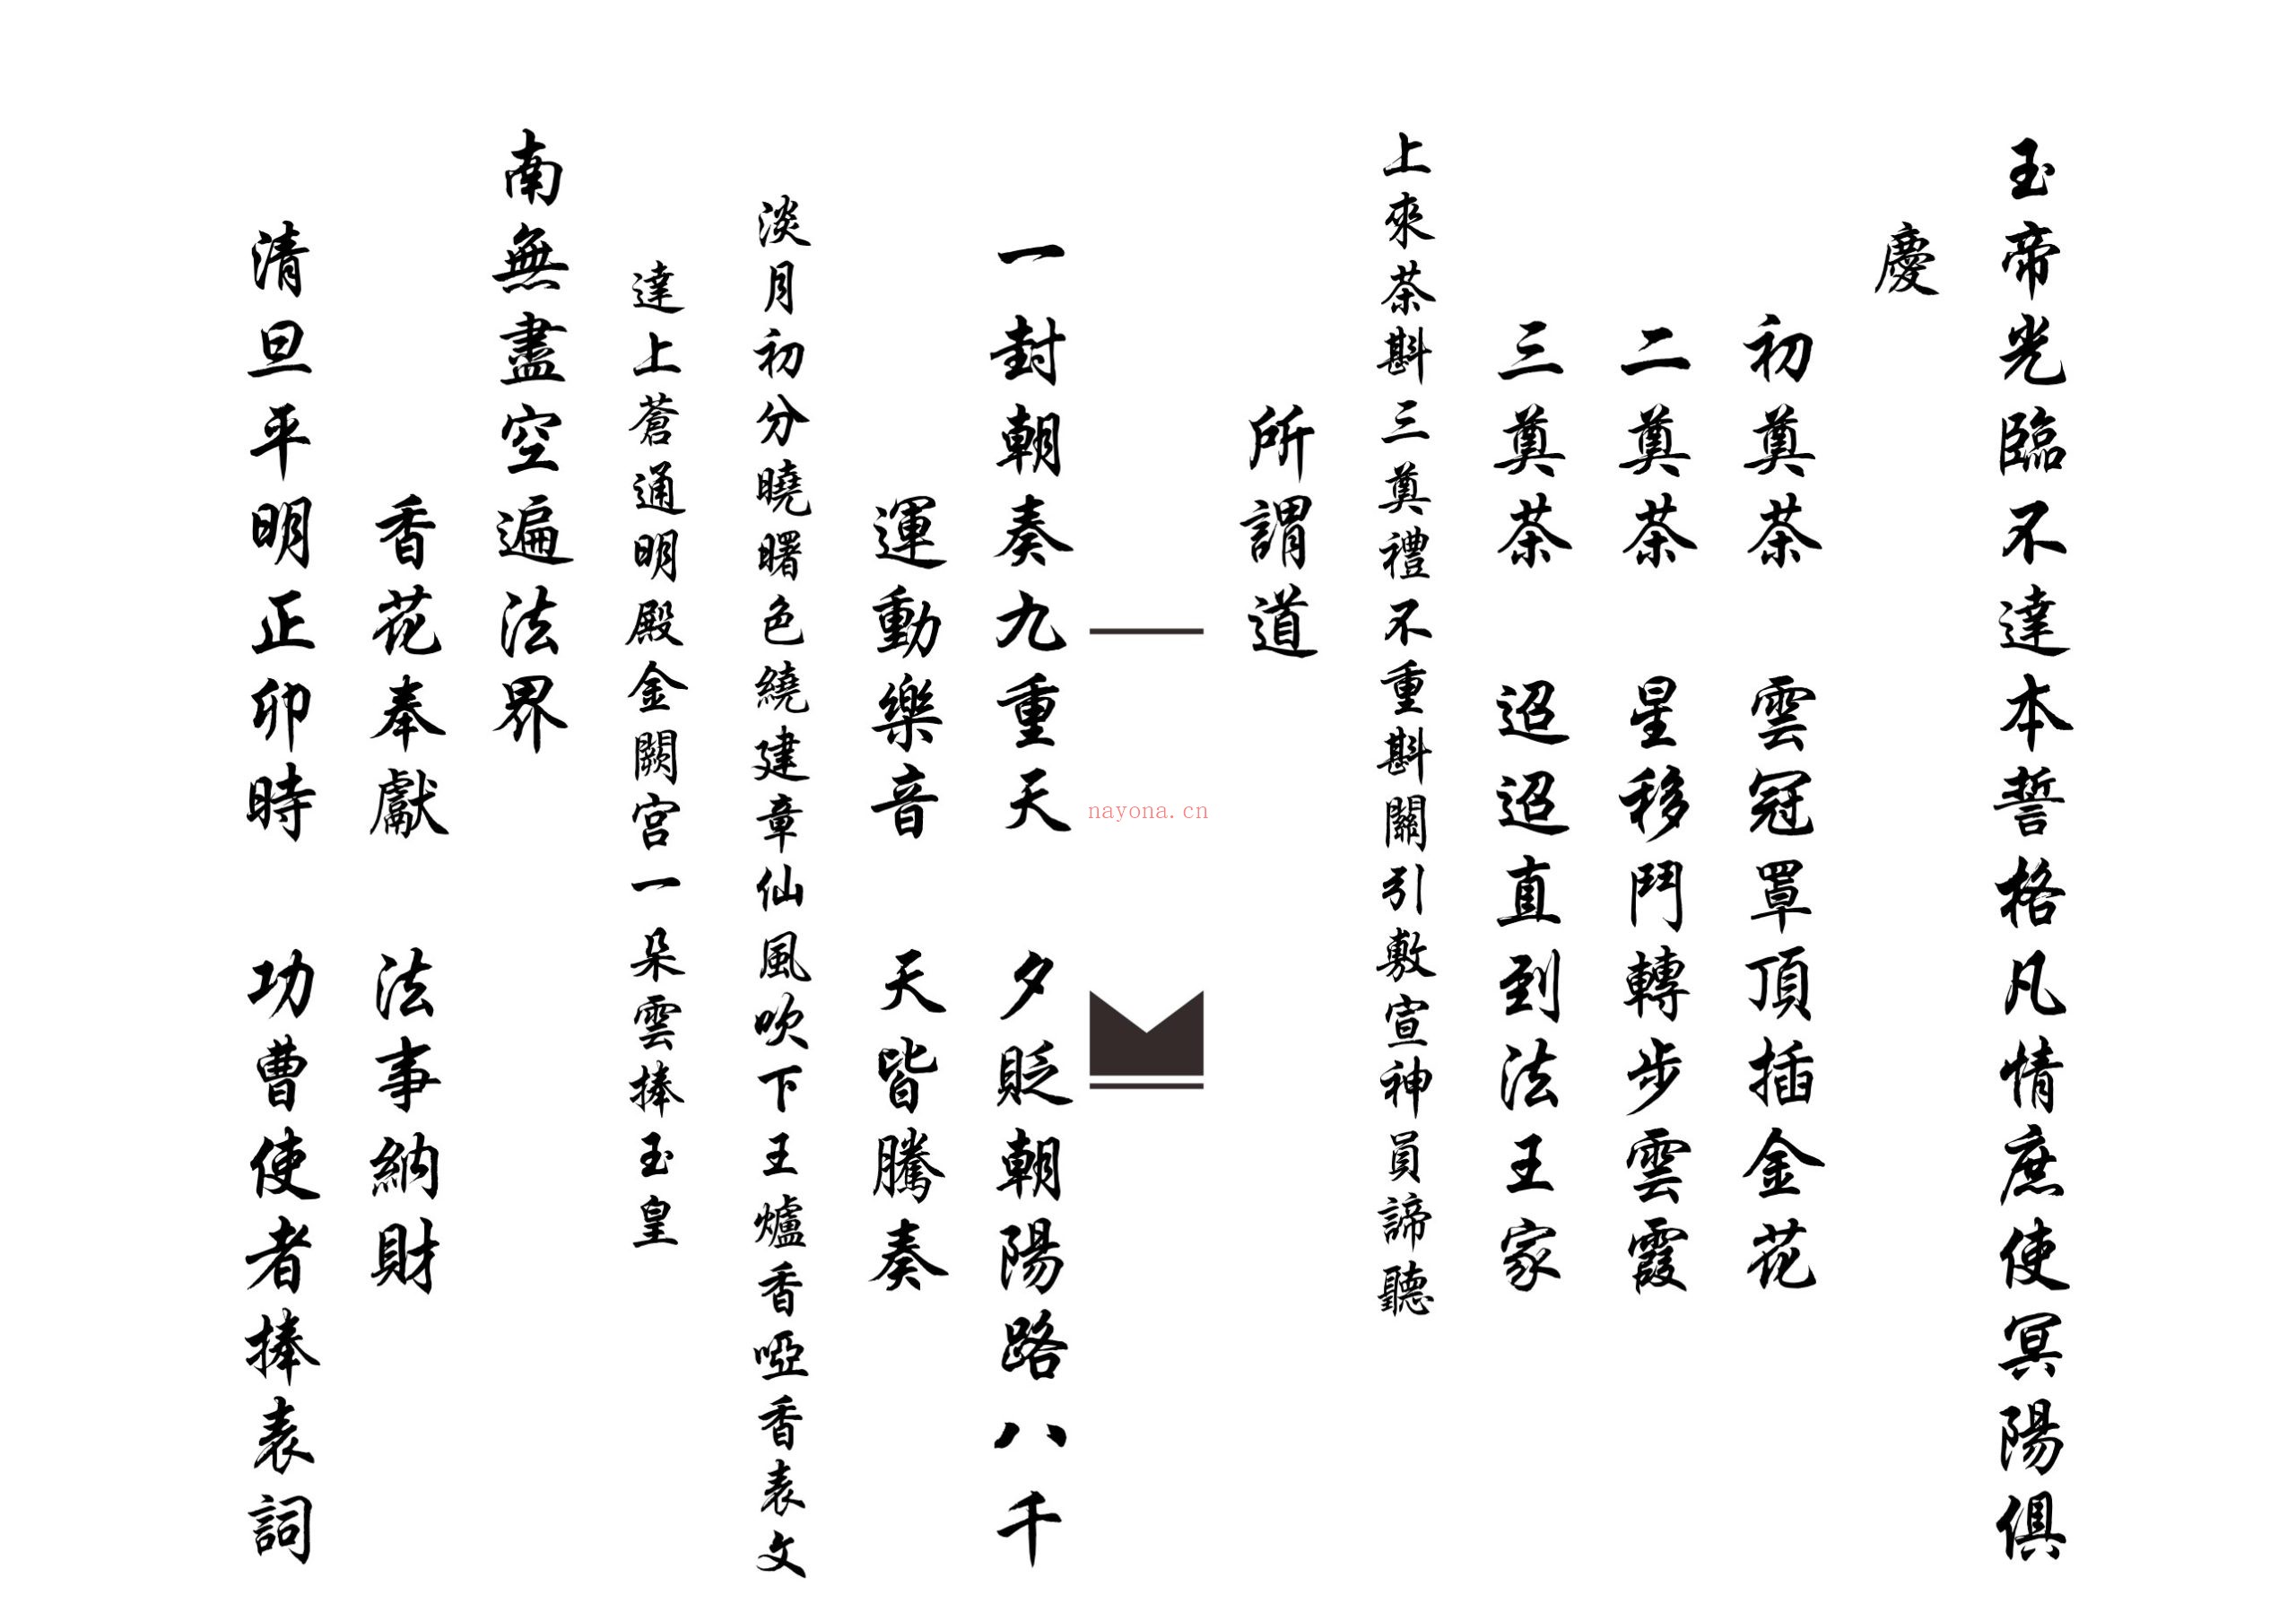 玉帝光臨不達本誓格凡情庶使冥陽俱
慶
初奠茶 雲冠罩頂插金花
二奠茶 星移鬥轉步雲霞
三奠茶 迢迢直到法王家
上來茶斟三奠禮不重斟關引敷宣神員諦聽
所謂道
nayona.cn
一封朝奏九重天 夕貶朝陽路八千
運動樂音 天皆騰奏
淡月初分曉曙色繞建章仙風吹下王爐香啞香表文
達上蒼通明殿金闕宮一朵雲捧玉皇
南無盡空遍法界
香花奉獻 法事納財
清旦平明正卯時 功曹使者捧表詞